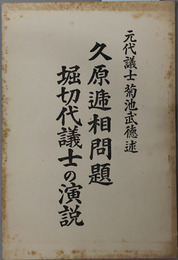 元代議士菊池武德述
久原遞相問題
堀切代議士の演説